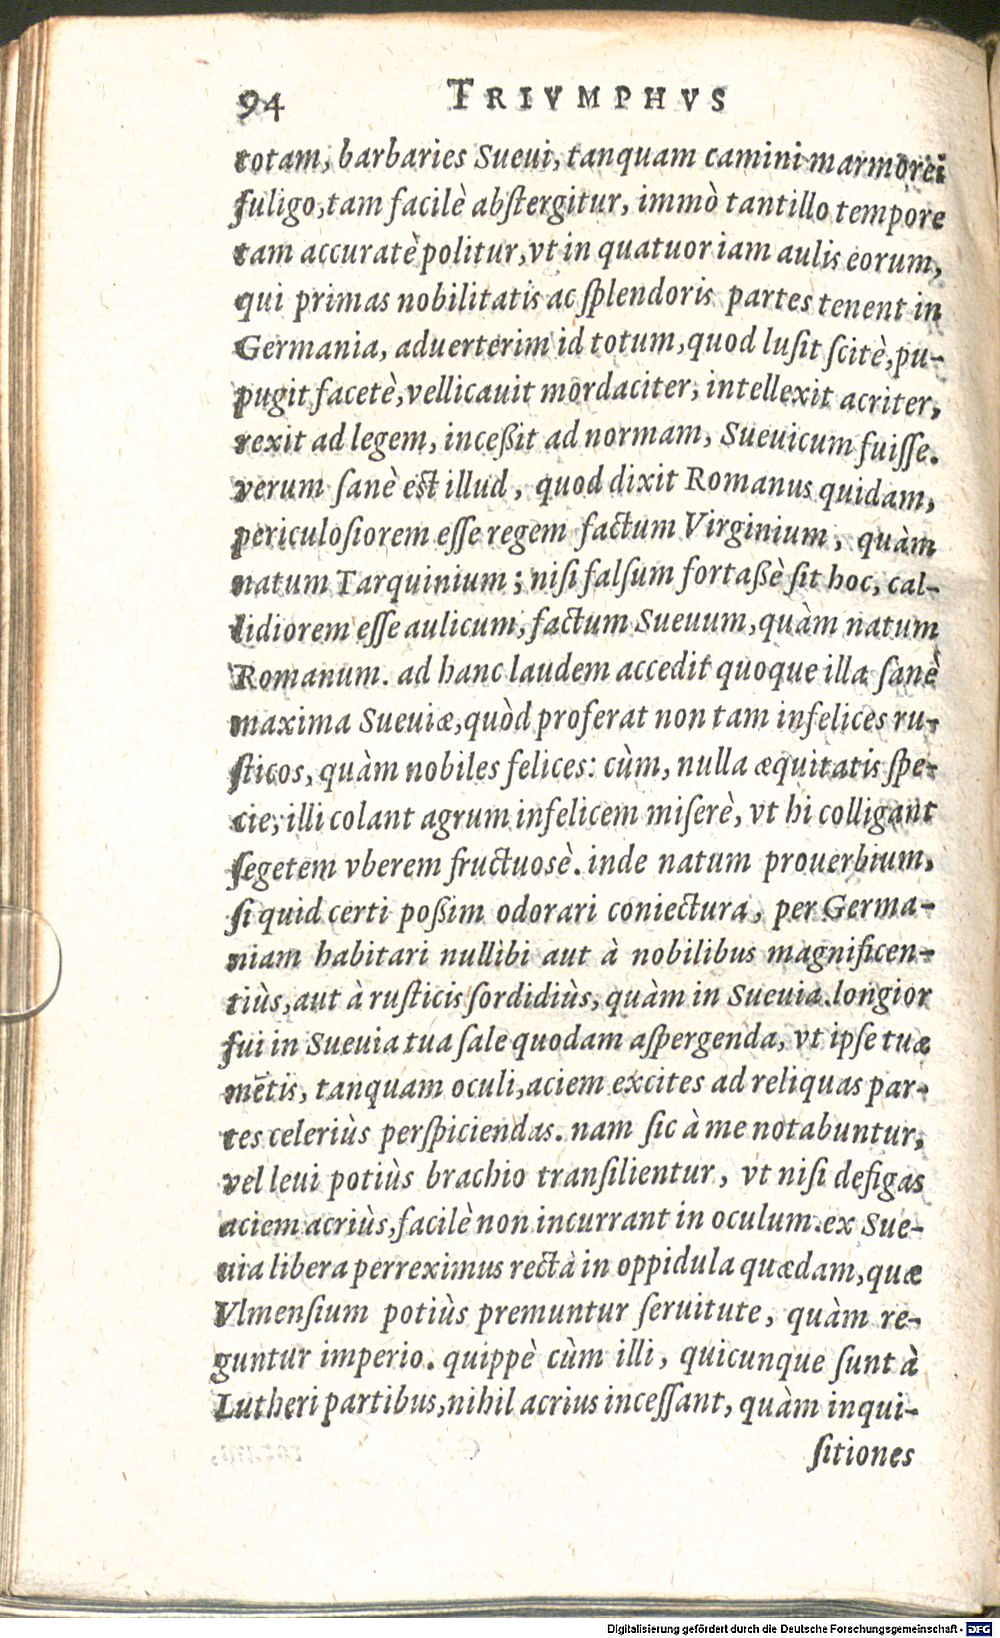 94 TRIVMPHVS
totam, barbaries Sueui, tanquam camini marmorei
fuligo, tam facilè abſtergitur, immò tantillo tempore
tam accuratè politur, vt in quatuor iam aulis eorum,
qui primas nobilitatis ac ſplendoris partes tenent in
Germania, aduerterim id totum, quod luſit ſcitè, pu-
pugit facetè, vellicauit mordaciter, intellexit acriter,
rexit ad legem, inceßit ad normam, Sueuicum fuiſſe.
verum ſanè est illud, quod dixit Romanus quidam,
periculoſiorem eſſe regem factum Virginium, quàm
natum Tarquinium; niſi falſum fortaßè ſit hoc, cal-
lidiorem eſſe aulicum, factum Sueuum, quàm natum
Romanum. ad hanc laudem accedit quoque illa ſanè
maxima Sueuiæ, quòd proferat non tam infelices ru-
ſticos, quàm nobiles felices: cùm, nulla æquitatis ſpe-
cie, illi colant agrum infelicem miſerè, vt hi colligant
ſegetem vberem fructuosè. inde natum prouerbium,
ſi quid certi poßim odorari coniectura, per Germa-
niam habitari nullibi aut à nobilibus magnificen-
tiùs, aut à ruſticis ſordidiùs, quàm in Sueuia. longior
fui in Sueuia tua ſale quodam aſpergenda, vt ipſe tuæ
mētis, tanquam oculi, aciem excites ad reliquas par-
tes celeriùs perſpiciendas. nam ſic à me notabuntur,
vel leui potiùs brachio tranſilientur, vt niſi defigas
aciem acriùs, facilè non incurrant in oculum. ex Sue-
uia libera perreximus rectà in oppidula quædam, quæ
Vlmenſium potiùs premuntur ſeruitute, quàm re-
guntur imperio. quippè cùm illi, quicunque ſunt à
Lutheri partibus, nihil acrius inceſſant, quàm inqui-
ſitiones
Digitalisierung gefördert durch die Deutsche Forschungsgemeinschaft - DFG